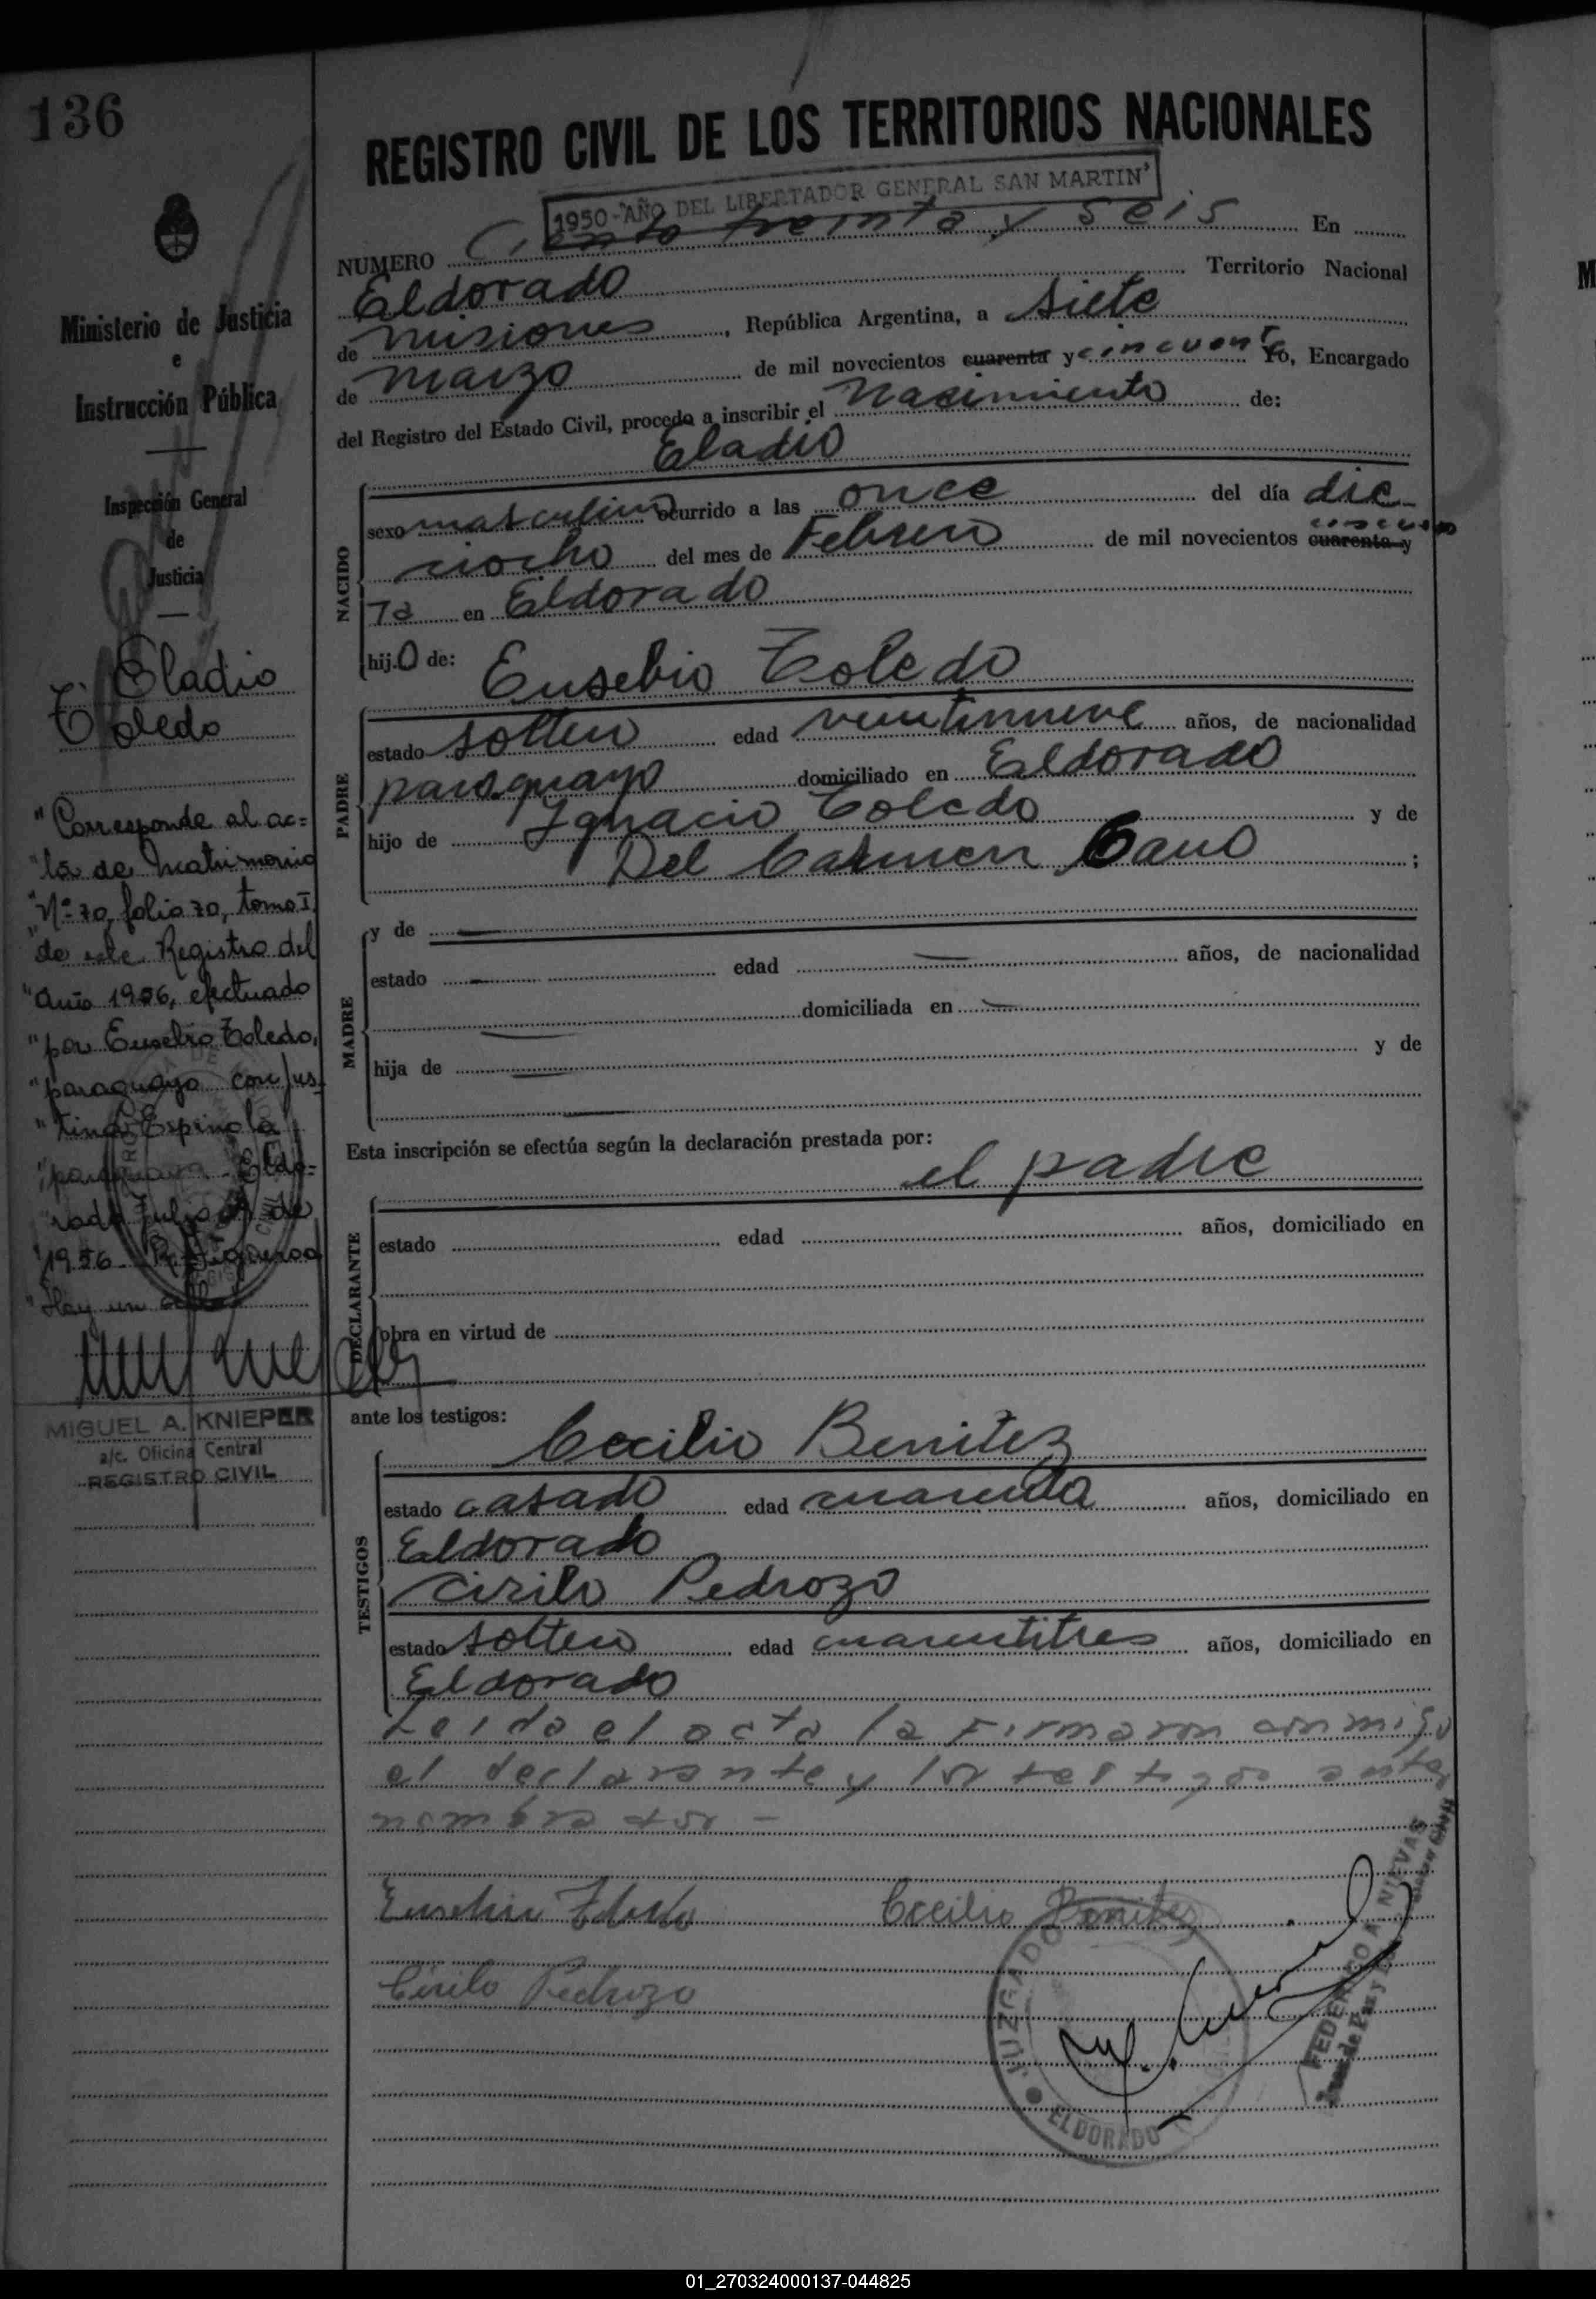 136
REGISTRO CIVIL DE LOS TERRITORIOS NACIONALES
1950 - "AÑO DEL LIBERTADOR GENERAL SAN MARTIN"
NUMERO Ciento treinta y seis En
Eldorado Territorio Nacional
de Misiones, República Argentina, a siete
de marzo de mil novecientos cuarenta y cincuenta Yo, Encargado
del Registro del Estado Civil, procedo a inscribir el Nacimiento de:
Eladio
NACIDO
sexo masculino ocurrido a las once del día die
ciocho del mes de Febrero de mil novecientos cuarenta y cincuen
ta en Eldorado
hijo de:
Eusebio Toledo
PADRE
estado soltero edad veintinueve años, de nacionalidad
paraguayo domiciliado en Eldorado
hijo de Ignacio Toledo y de
Del Carmen Cano ;
MADRE
y de
estado edad años, de nacionalidad
domiciliada en
hija de y de
Esta inscripción se efectúa según la declaración prestada por:
el padre
DECLARANTE
estado edad años, domiciliado en
obra en virtud de
ante los testigos:
Cecilio Benitez
TESTIGOS
estado casado edad cuarenta años, domiciliado en
Eldorado
Cirilo Pedrozo
estado soltero edad cuarentitres años, domiciliado en
Eldorado
Leida el acta la Firmaron conmigo
el declarante y los testigos antes
nombrados -
Eusebio Toledo Cecilio Benitez
Cirilo Pedrozo
JUZGADO
ELDORADO
FEDERICO A. NIEVAS
Juez de Paz y
Ministerio de Justicia
e
Instrucción Pública
Inspección General
de
Justicia
Eladio
Toledo
"Corresponde al ac=
"ta de Matrimonio
"Nº 70, folio 70, tomo I
"de este Registro del
"Año 1956, efectuado
"por Eusebio Toledo,
"paraguayo con Jus-
"tina Espinola
"paraguaya. Eldo=
"rado Julio de
"1956. R. Figueroa
"Hay un sello
MIGUEL A. KNIEPER
a/c. Oficina Central
REGISTRO CIVIL
01_270324000137-044825